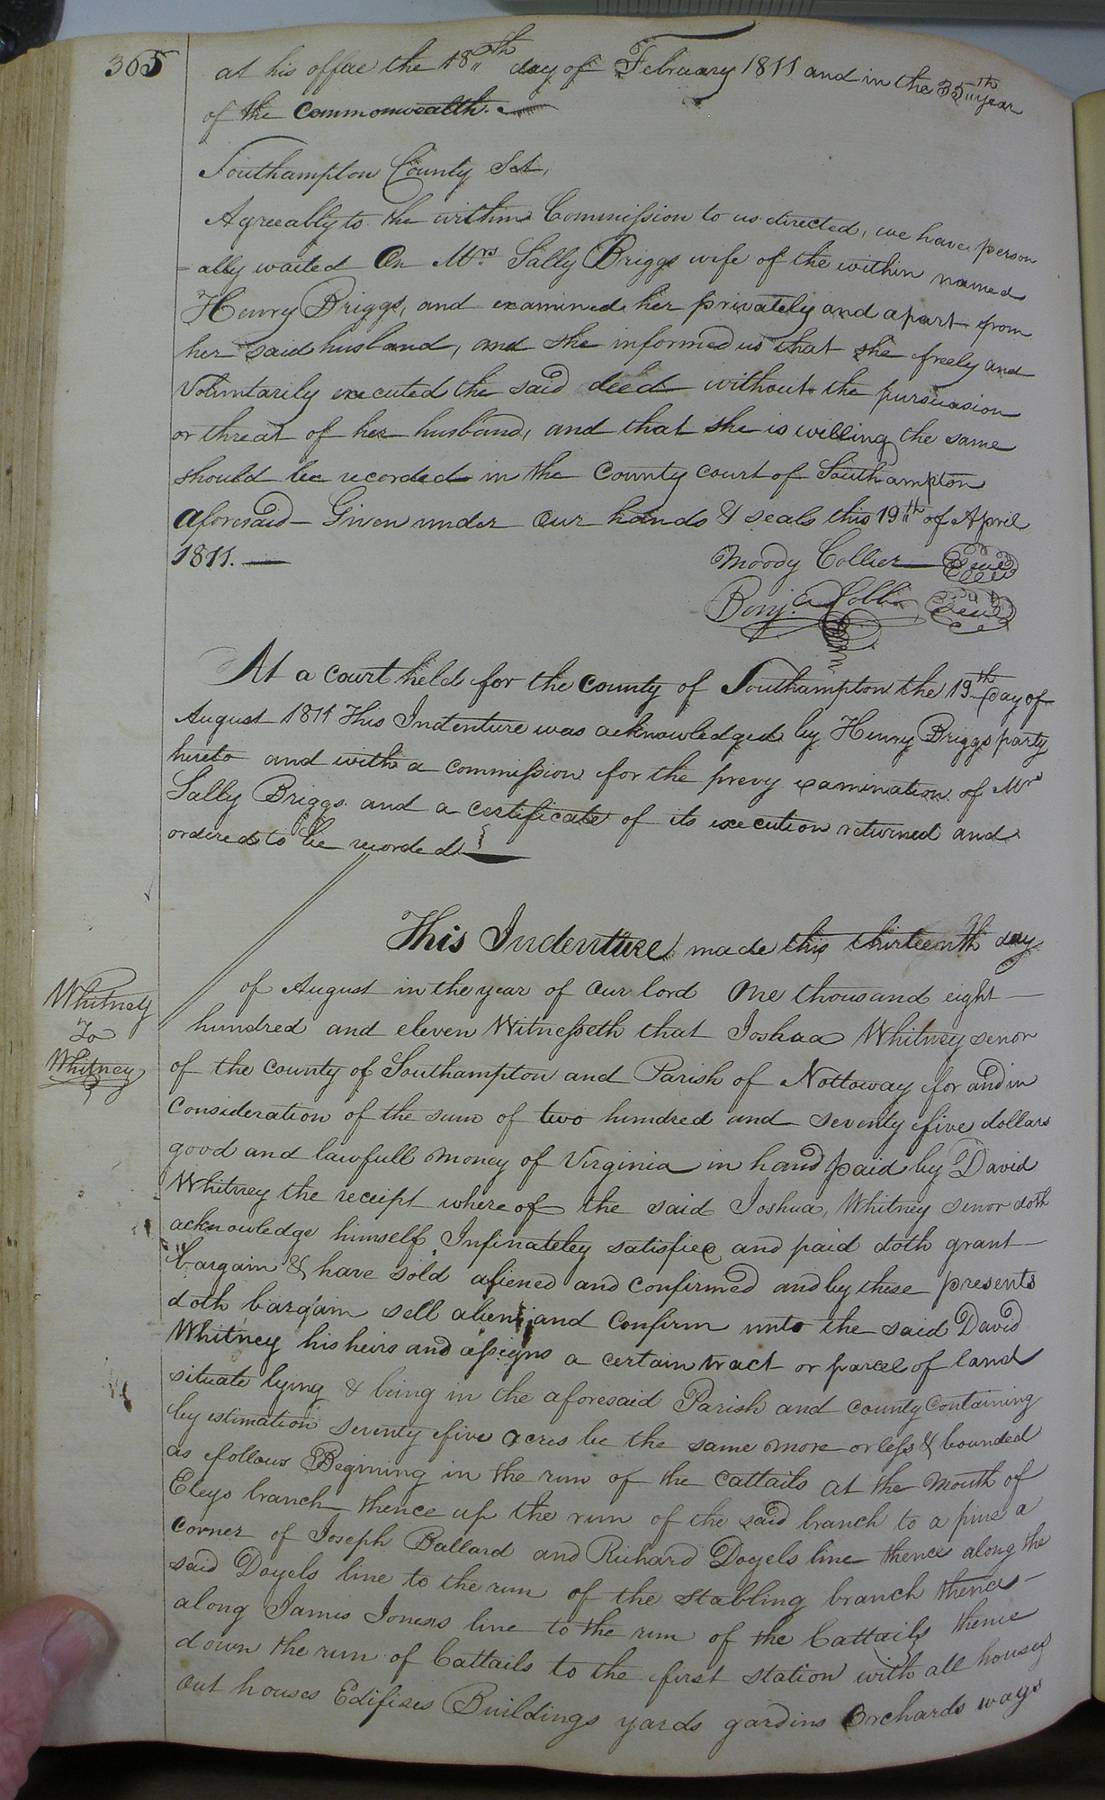 365
at his offae the 18th day of February 1811 and in the 35th year
of the Commonwealth.
Southampton County Sct,
Agreeably to the within Commission to us directed, we have person
-ally waited On Mrs Sally Briggs wife of the within named
Henry Briggs, and examined her privately and apart from
her said husband, and she informed us that she freely and
Voluntarily executed the said deed without the pursuasion
or threat of her husband, and that she is willing the same
should be recorded in the County court of Southampton
aforesaid — Given under Our hands & seals this 19th of April
1811. —
Moody Collier — Seal
Benj. Cobb Seal
At a court held for the County of Southampton the 19th day of
August 1811 This Indenture was acknowledged by Henry Briggs party
hereto and with a commission for the prevy examination of Mrs
Sally Briggs and a certificate of its execution returned and
ordered to be recorded
This Indenture made this thirteenth day
of August in the year of Our lord One thousand eight —
hundred and eleven Witnesseth that Joshua Whitney senor
Whitney
To
Whitney
of the county of Southampton and Parish of Nottoway for and in
Consideration of the sum of two hundred and seventy five dollars
good and lawfull money of Virginia in hand paid by David
Whitney the receipt where of the said Joshua, Whitney senor doth
acknowledge himself Infinateley satisfied and paid doth grant —
bargain & have sold aliened and confirmed and by these presents
doth bargain sell alien and Confirm unto the said David
Whitney his heirs and assigns a certain tract or parcel of land
situate lying & being in the aforesaid Parish and county containing
by estimation seventy five acres be the same more or less & bounded
as follows Begining in the run of the Cattails at the Mouth of
Eleys branch thence up the run of the said branch to a pine a
Corner of Joseph Ballard and Richard Doyels line thence along the
said Doyels line to the run of the stabling branch thence —
along James Joness line to the run of the Cattails thence
down the run of Cattails to the first station with all houses
out houses Edifises Buildings yards gardins Orchards ways